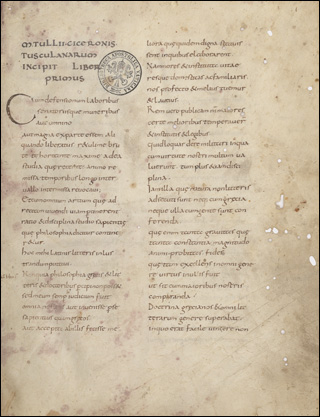 M·TULLII·CICERONIS
TUSCULANARUM
INCIPIT LIBER
PRIMUS
Cum defensionum laboribus
senatoriisque muneribus
aut omnino
aut magna ex parte essem ali
quando liberatus rettuli me bru
te te hortante maxime ad ea
studia quae retenta animo re
missa temporibus longo inter
vallo intermissa revocavi
Et cum omnium artium quae ad
rectam vivendi viam pertinerent
ratio et disciplina studio sapientiae
quae philosophia dicitur contine
retur
hoc mihi latinis litteris inlus
trandum putavi
Non quia philosophia graecis et lit
teris et doctoribus percipi non pos
sit sed meum semper iudicium fuit
omnia nostros aut invenisse per se
sapientius quam graecos
aut accepta ab illis fecisse me
liora quae quidem digna statuis
sent in quibus elaborarent
Nam mores et instituta vitae
resque domesticas ac familiaris
nos profecto et melius tuemur
et lautius
Rem vero publicam maiores
certe melioribus temperaver
et institutis et legibus
quid loquar de re militari in qua
cum virtute nostri multum va
luerunt tum plus etiam disci
plina
Iam illa quae natura non litteris
adsecuti sunt neque cum graecia
neque ulla cum gente sunt con
ferenda
quae enim tanta gravitas quae
tanta constantia magnitudo
animi probitas fides
quae tam excellens in omni gene
re virtus in ullis fuit
ut sit cum maioribus nostris
comparanda
Doctrina graecia nos et omni lit
terarum genere superabat
in quo erat facile vincere non